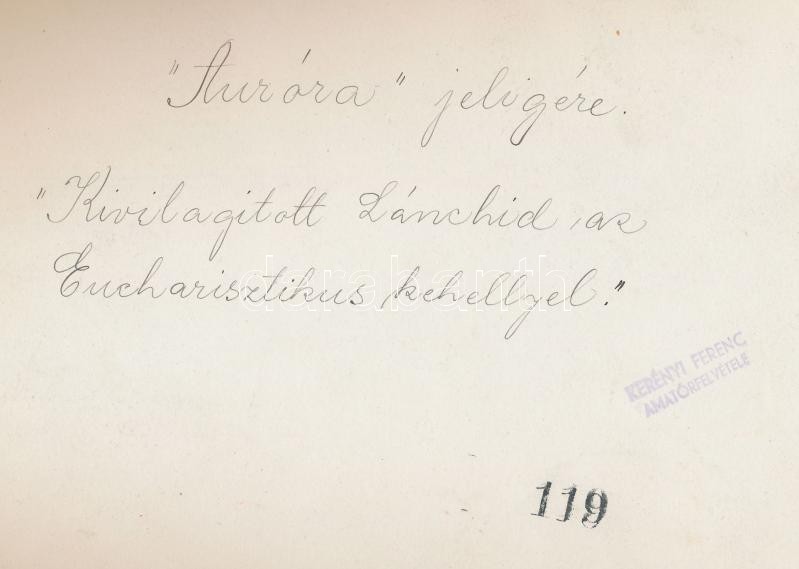 "Auróra" jeligére.
"Kivilagitott Lánchid, az
Eucharisztikus kehellyel."
darabanth
KERÉNYI FERENC
AMATŐRFELVÉTELE
119